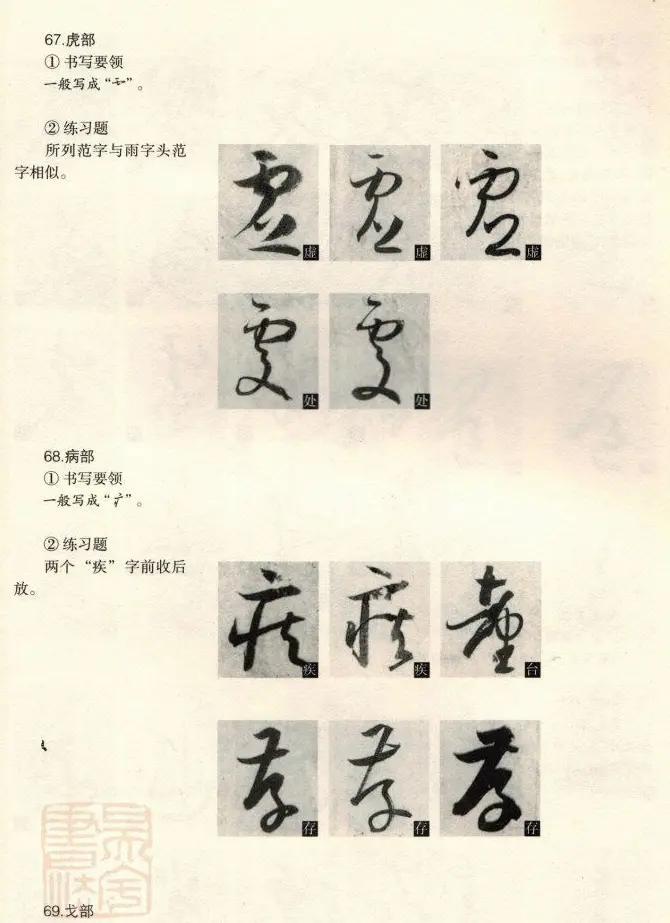 67.虎部
① 书写要领
一般写成“”。
② 练习题
所列范字与雨字头范
字相似。
虚 虚 虚
处 处
68.病部
① 书写要领
一般写成“疒”。
② 练习题
两个“疾”字前收后
放。
疾 疾 台
存 存 存
69.戈部